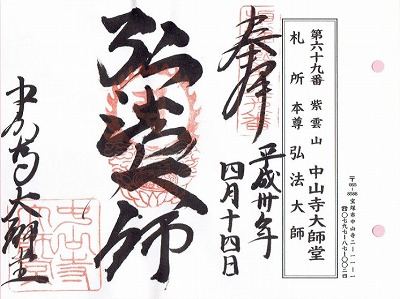 第六十九番 紫雲山 中山寺大師堂
札所本尊 弘法大師
〒665-8588 宝塚市中山寺二-一一-一
☎〇七九七-八七-〇〇二四
奉拝
平成卅年
四月十四日
弘法大師
中山寺大師堂